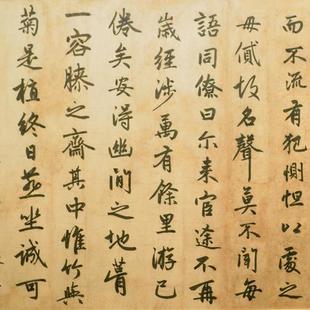 而不流有犯惻怛以處之
毋貳故名聲莫不聞每
語同僚曰尓来官途不再
歲經涉萬有餘里游已
倦矣安得幽閒之地葺
一容膝之齋其中惟竹與
菊是植終日燕坐誠可